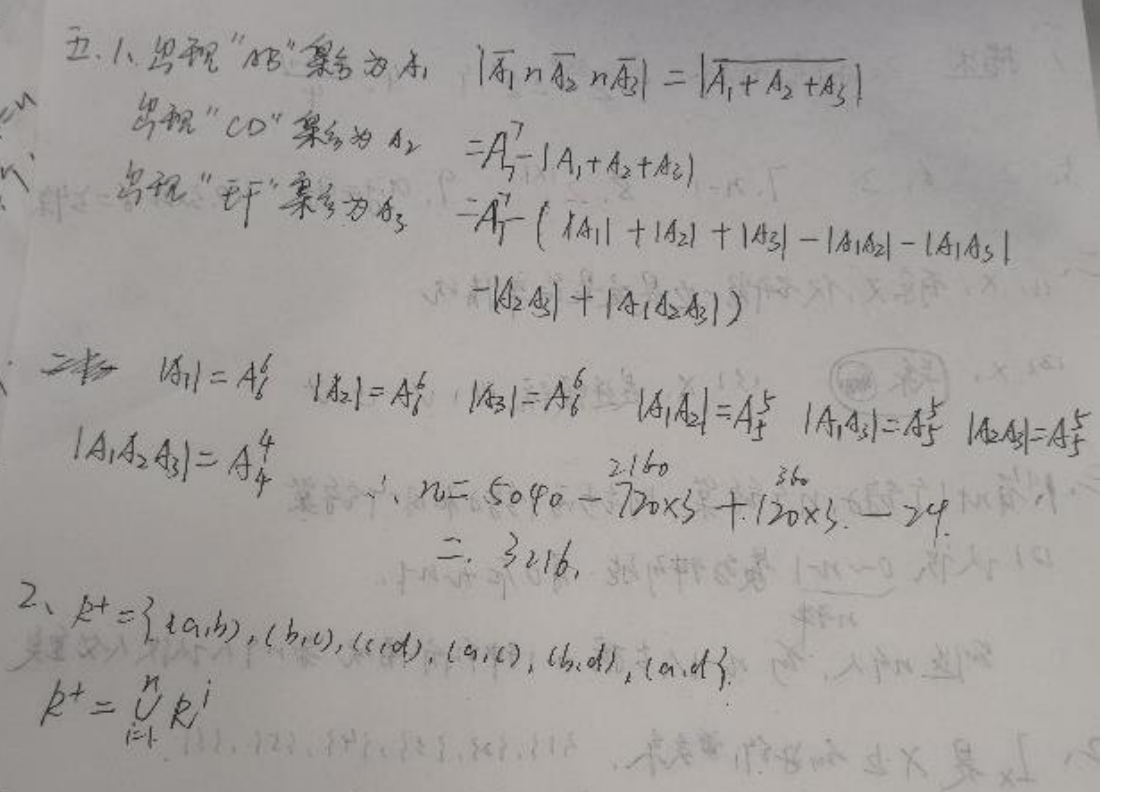 五.1、出现"AB"集合为A₁ |A̅₁∩A̅₂∩A̅₃| = |\overline{A₁+A₂+A₃}|
出现"CD"集合为A₂ =A₇⁷-|A₁+A₂+A₃|
出现"EF"集合为A₃ =A₇⁷-(|A₁|+|A₂|+|A₃|-|A₁A₂|-|A₁A₃|
-|A₂A₃|+|A₁A₂A₃|)
|A₁|=A₆⁶ |A₂|=A₆⁶ |A₃|=A₆⁶ |A₁A₂|=A₅⁵ |A₁A₃|=A₅⁵ |A₂A₃|=A₅⁵
|A₁A₂A₃|=A₄⁴
2160 360
∴ n=5040-720×3+120×3-24
=3216.
2、R⁺={(a,b),(b,c),(c,d),(a,c),(b,d),(a,d)}.
R⁺=\bigcup_{i=1}^{n} Rⁱ